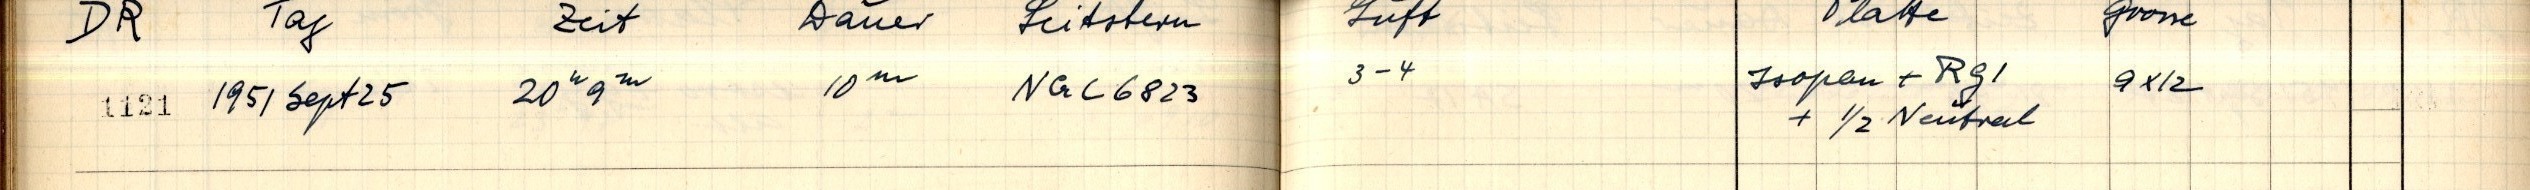 DR Tag Zeit Dauer Leitstern Luft Platte Grosse
1121 1951 Sept 25 20h 9m 10m NGC 6823 3-4 Isopan + Rg1 9x12
+ 1/2 Neutral